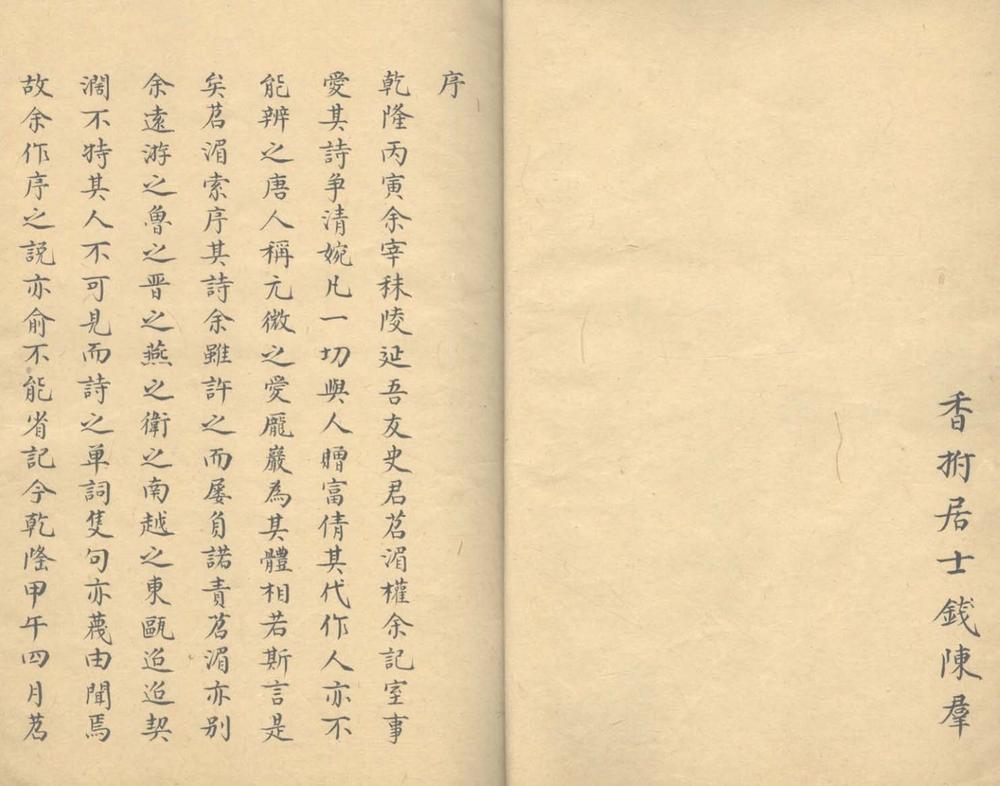 香樹居士錢陳羣
序
乾隆丙寅余宰秣陵延吾友史君茗湄權余記室事
愛其詩爭清婉凡一切與人贈富倩其代作人亦不
能辨之唐人稱元微之愛龐嚴為其體相若斯言是
矣茗湄索序其詩余雖許之而屡負諾責茗湄亦别
余遠游之魯之晋之燕之衛之南越之東甌迢迢契
濶不特其人不可見而詩之单詞隻句亦蔑由聞焉
故余作序之説亦俞不能省記今乾隆甲午四月茗